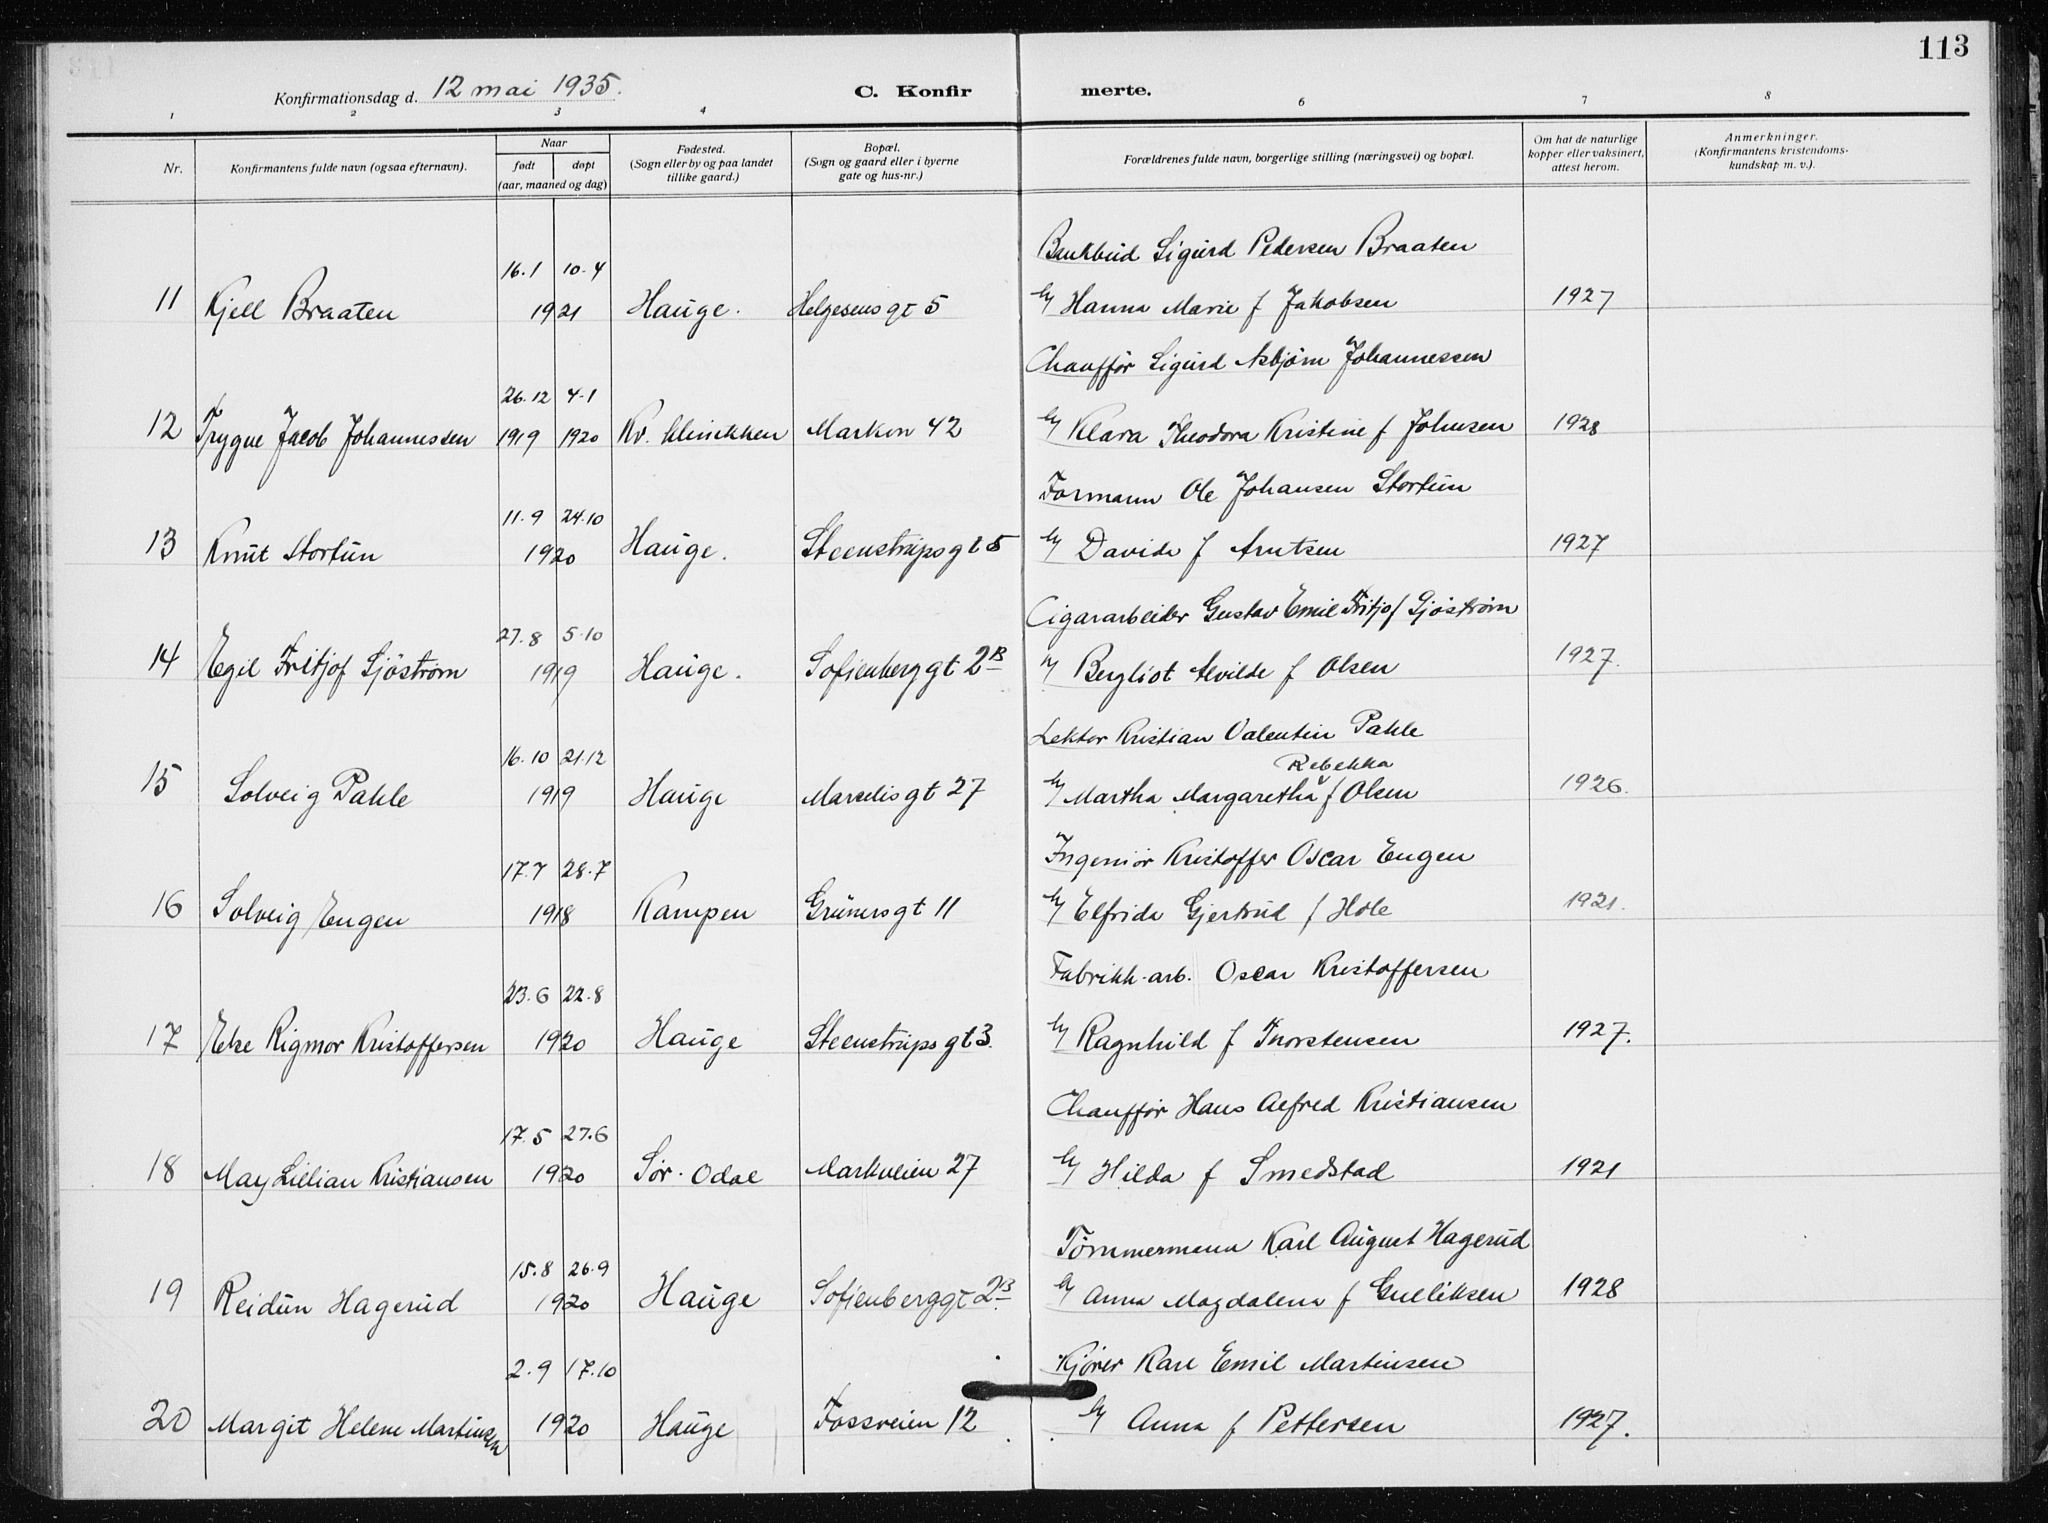 113
Konfirmationsdag d. 12 mai 1935.
C. Konfirmerte.
1 2 3 4 6 7 8
Nr.
Konfirmantens fulde navn (ogsaa efternavn).
Naar
født døpt
(aar, maaned og dag)
Fødested.
(Sogn eller by og paa landet
tillike gaard.)
Bopæl.
(Sogn og gaard eller i byerne
gate og hus-nr.)
Forældrenes fulde navn, borgerlige stilling (næringsvei) og bopæl.
Om hat de naturlige
kopper eller vaksinert,
attest herom.
Anmerkninger.
(Konfirmantens kristendoms-
kundskap m. v.).
16.1 10.4 Bankbud Sigurd Pedersen Braaten
11 Kjell Braaten 1921 Hauge. Helgesens gt 5 Hanna Marie f Jakobsen 1927
26.12 4.1 Chauffør Sigurd Asbjørn Johannessen
12 Trygve Jacob Johannessen 1919 1920 Kv. klinikken Markvn 42 Klara Theodora Kristine f Johnsen 1928
11.9 24.10 Formann Ole Johansen Stortun
13 Knut Stortun 1920 Hauge. Steenstrups gt 5 Davida f Arntsen 1927
27.8 5.10 Cigararbeider Gustav Emil Fritjof Sjöström
14 Egil Fritjof Sjöström 1919 Hauge. Sofienberg gt 2B Bergliot Alvilde f Olsen 1927.
16.10 21.12 Lektor Kristian Valentin Pahle
Rebekka
15 Solveig Pahle 1919 Hauge Marselis gt 27 Martha Margaretha f Olsen 1926.
17.7 28.7 Ingeniør Kristoffer Oscar Engen
16 Solveig Engen 1918 Kampen Grüners gt 11 Elfrida Gjertrud f Hole 1921.
23.6 22.8 Fabrikk-arb. Oscar Kristoffersen
17 Else Rigmor Kristoffersen 1920 Hauge Steenstrups gt 3. Ragnhild f Thorstensen 1927.
17.5 27.6 Chauffør Hans Alfred Kristiansen
18 May Lillian Kristiansen 1920 Sør-Odal Markveien 27 Hilda f Smedstad 1921
15.8 26.9 Tømmermann Karl August Hagerud
19 Reidun Hagerud 1920 Hauge Sofienberggt 2B Anna Magdalena f Gulliksen 1928
2.9 17.10 Kjører Karl Emil Martinsen
20 Margit Helene Martinsen 1920 Hauge Fossveien 12 Anna f Pettersen 1927.